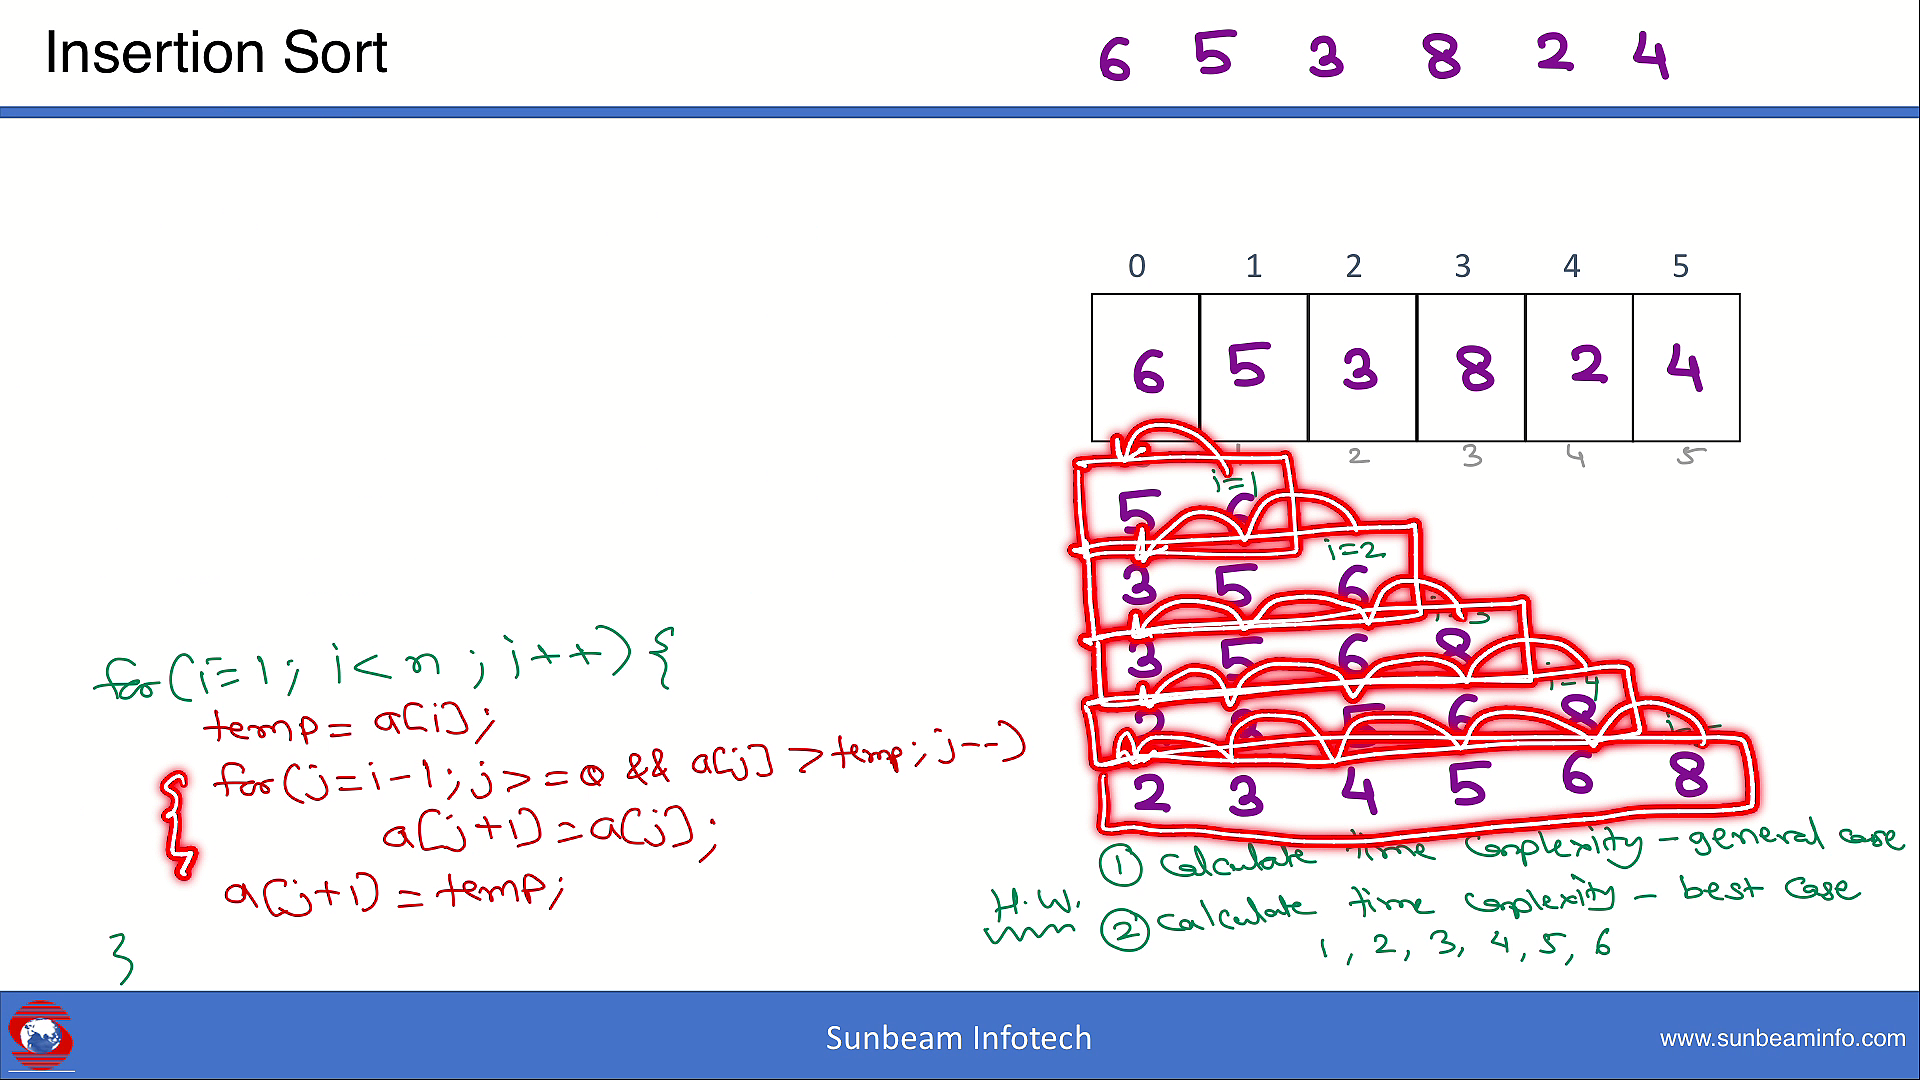 Insertion Sort
6 5 3 8 2 4
0 1 2 3 4 5
6 5 3 8 2 4
2 3 4 5
i=1
5 6
i=2
3 5 6
3 5 6 8
i=4
2 3 5 6 8
2 3 4 5 6 8
for(i=1; i<n ; i++){
temp = a[i];
for(j=i-1; j>=0 && a[j] > temp; j--)
a[j+1] = a[j];
a[j+1] = temp;
}
H.W.
① Calculate time complexity - general case
② Calculate time complexity - best case
1, 2, 3, 4, 5, 6
Sunbeam Infotech
www.sunbeaminfo.com